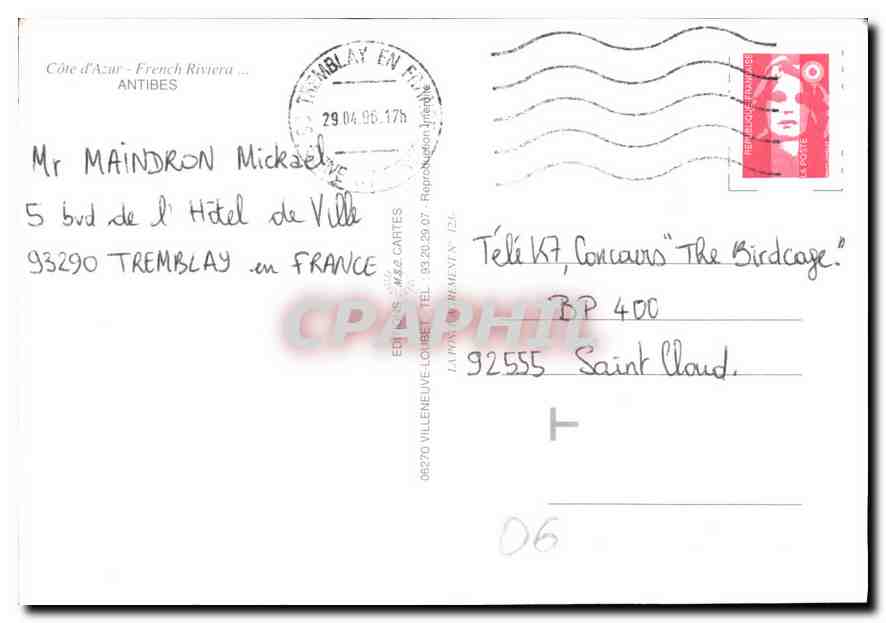 Côte d'Azur - French Riviera ...
ANTIBES
TREMBLAY EN FRANCE
29.04.96.17h
RÉPUBLIQUE FRANÇAISE
LA POSTE
Mr MAINDRON Mickaël
5 bvd de l'Hôtel de Ville
93290 TREMBLAY en FRANCE
EDITIONS M.S.C. CARTES
06270 VILLENEUVE-LOUBET - TEL : 93.20.29.07 - Reproduction interdite
CPAPHIL
Télé K7, Concours "The Birdcage."
BP 400
92555 Saint Cloud.
T
06